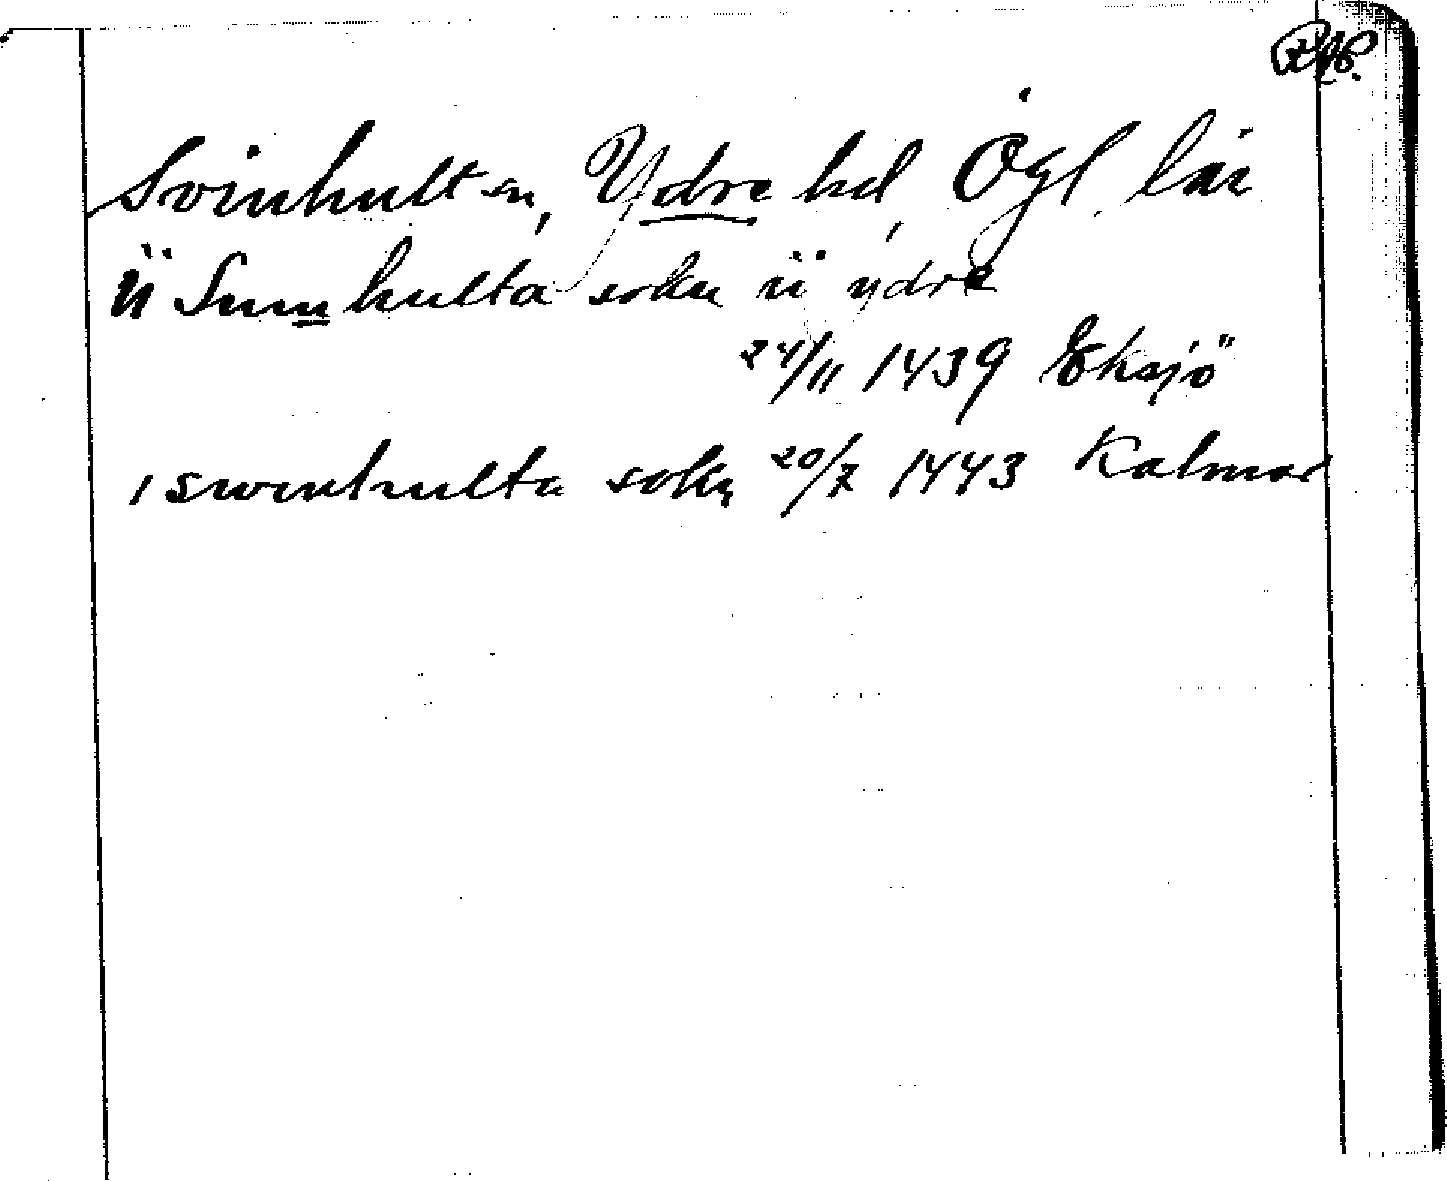 Svinhult sn, Ydre hd, Ögl. län
ii Sumhulta sokn ii ydre
24/11 1439 Eksjö
i swinhulta sokn 20/7 1443 Kalmar